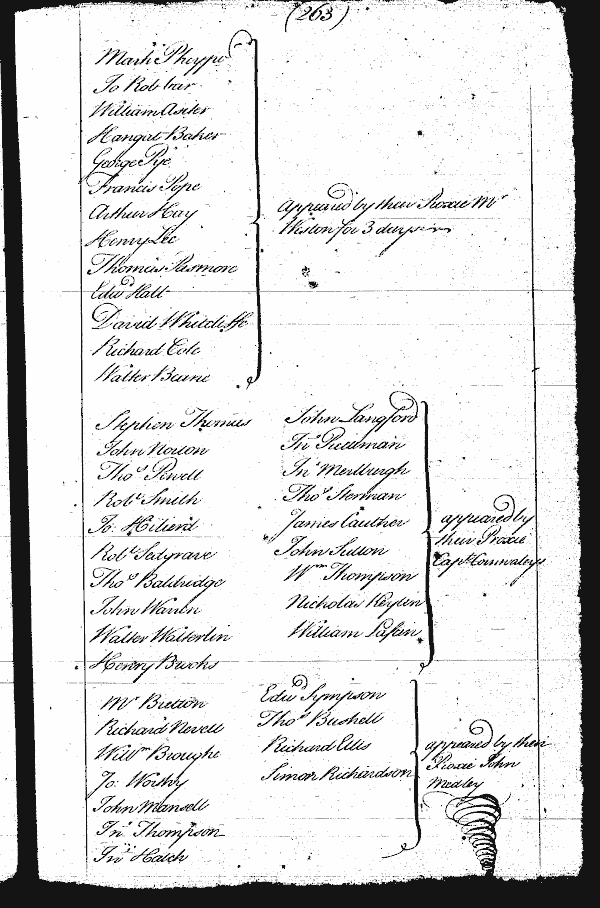 (263)
Mark Pheypo
Jo Robbar
William Asiter
Hangat Baker
George Pye
Francis Pope
Arthur Hay
Henry Lee
Thomas Pasmore
Edwd Hall
David Whitcliffe
Richard Cole
Walter Beane
Appeared by their Proxie Mr
Weston for 3 days
Stephen Thomas
John Norton
Thos Powell
Robt Smith
Jo. Hilierd
Robt Sedgrave
Thos Baldridge
John Warren
Walter Walterlin
Henry Bushs
John Langford
Jno Preedman
Jno Merlburgh
Thos Sterman
James Cauther
John Sutton
Wm Thompson
Nicholas Keyten
William
appeared by
their Proxie
Capt Cornwaleys
Mr Bretton
Richard Nevell
Willm Broughe
Jo. Worthy
John Mansell
Jno Thompson
Jno Hatch
Edwd Sympson
Thos Bushell
Richard Ellis
Simon Richardson
appeared by their
Proxie John
Medley